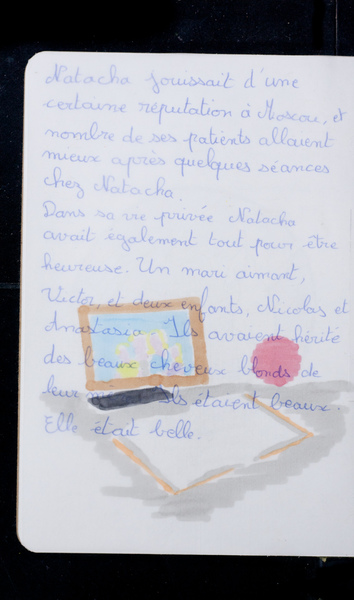 Natacha jouissait d'une
certaine réputation à Moscou, et
nombre de ses patients allaient
mieux après quelques séances
chez Natacha.
Dans sa vie privée Natacha
avait également tout pour être
heureuse. Un mari aimant,
Victor, et deux enfants, Nicolas et
Anastasia. Ils avaient hérité
des beaux cheveux blonds de
leur Ils étaient beaux.
Elle était belle.